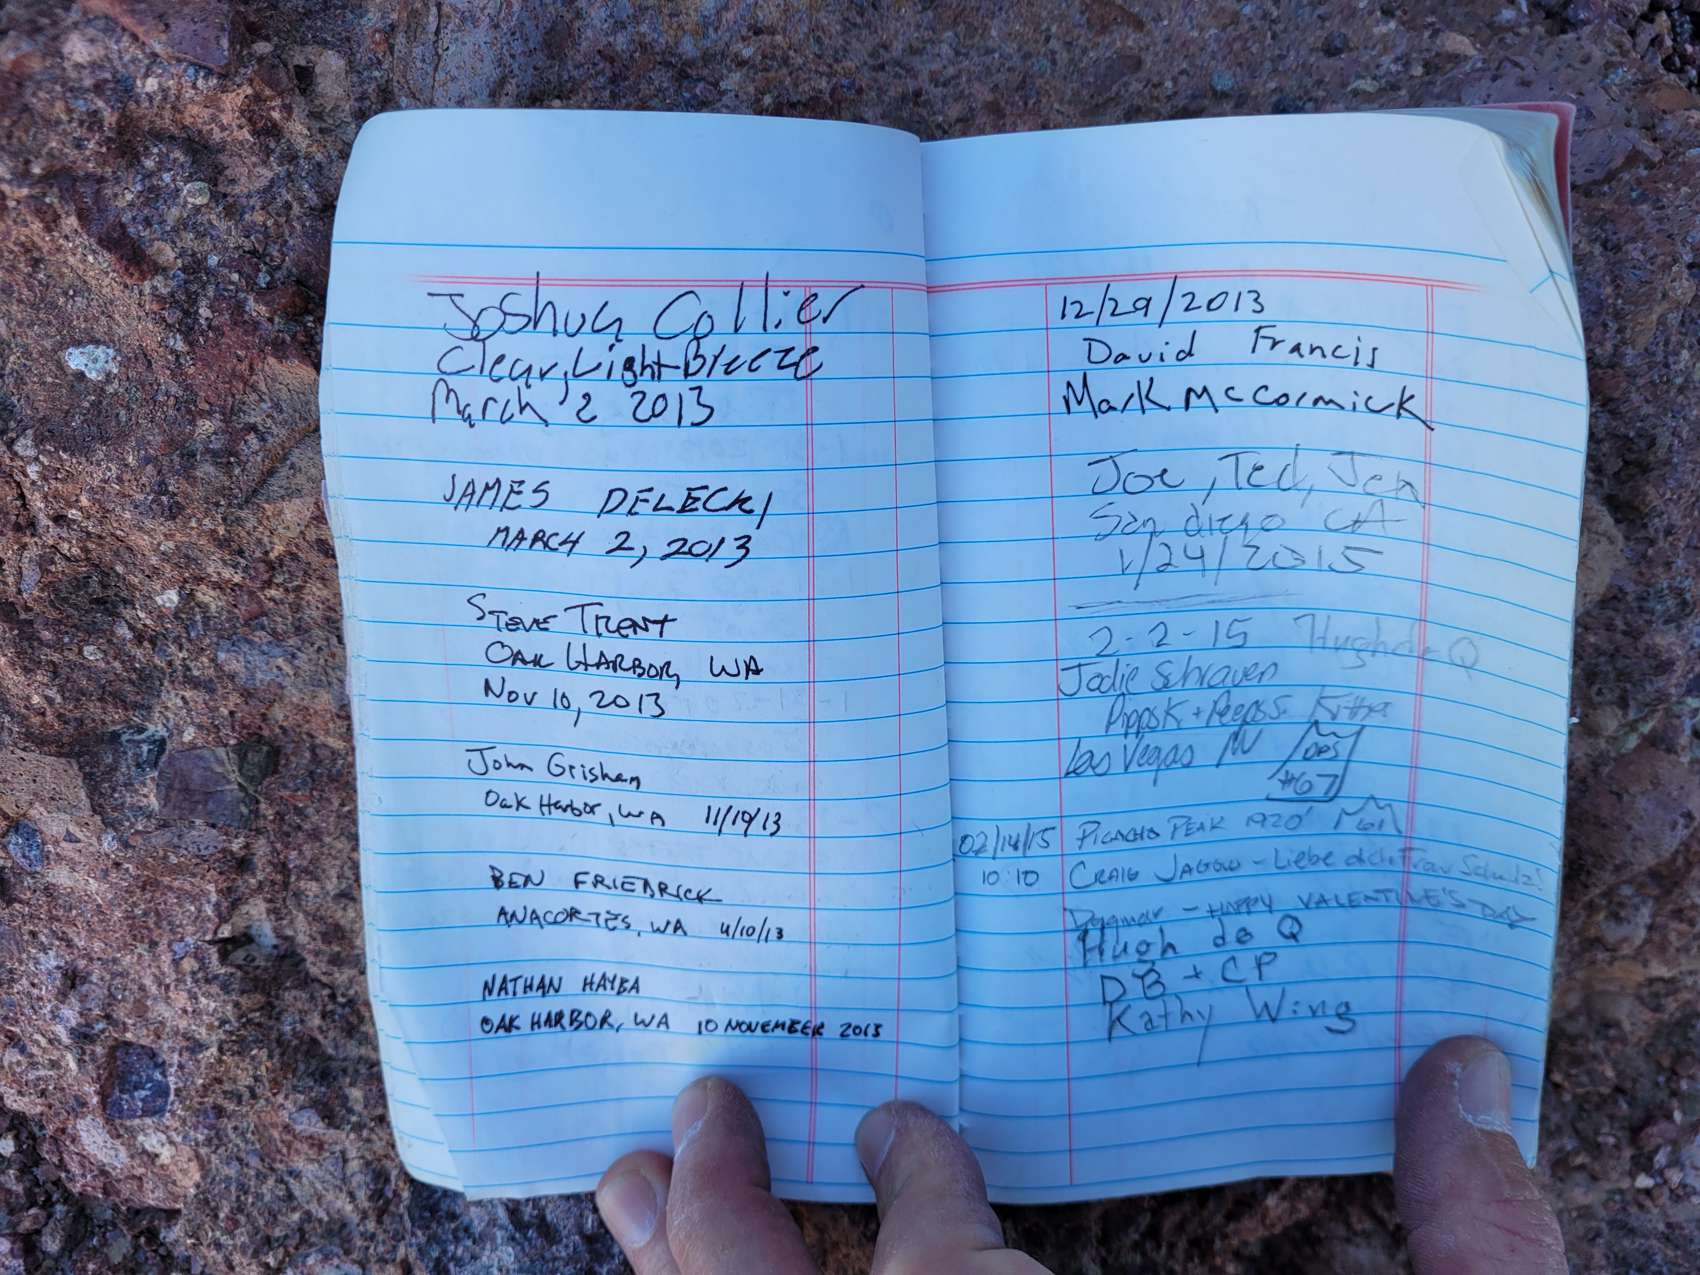 Joshua Collier
Clear, Light Breeze
March 2 2013
JAMES DELECKI
MARCH 2, 2013
STEVE TRENT
OAK HARBOR, WA
Nov 10, 2013
John Grisham
Oak Harbor, WA 11/10/13
BEN FRIEDRICK
ANACORTES, WA 11/10/13
NATHAN HAYBA
OAK HARBOR, WA 10 NOVEMBER 2013
12/29/2013
David Francis
Mark McCormick
Joe, Ted, Jen
San diego CA
1/24/2015
2-2-15 Hugh de Q
Jodie Schraven
Las Vegas NV
#67
02/14/15 PICACHO PEAK 1920'
10:10 CRAIG JAGOW - Liebe dich Frau Schulz!
Dagmar - HAPPY VALENTINE'S DAY
Hugh de Q
DB + CP
Kathy Wing